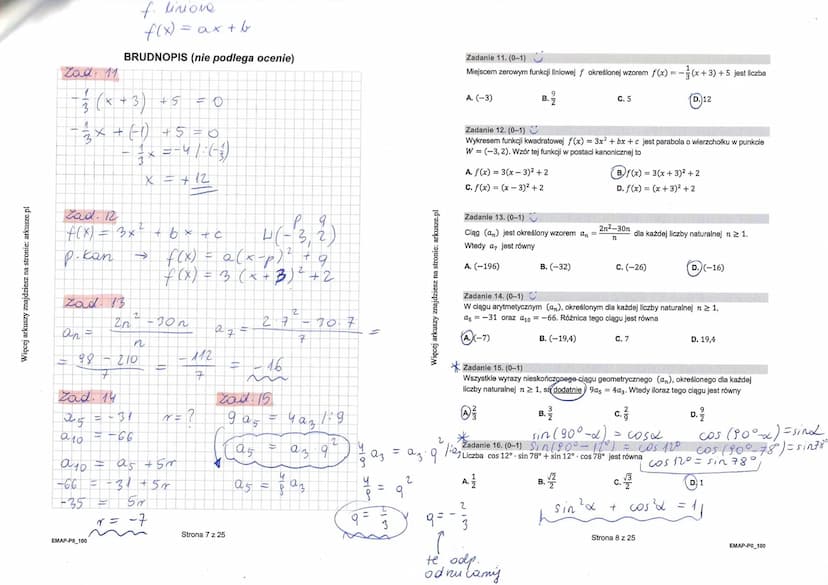 f. liniowa
f(x) = ax + b
BRUDNOPIS (nie podlega ocenie)
Zad. 11
-1/3 (x + 3) + 5 = 0
-1/3 x + (-1) + 5 = 0
-1/3 x = -4 /:(-1/3)
x = +12
Zad. 12
f(x) = 3x² + bx + c W(-3, 2)
p q
p. kan → f(x) = a(x-p)² + q
f(x) = 3(x+3)² + 2
Zad. 13
aₙ = 2n² - 30n / n a₇ = 2·7² - 30·7 / 7 =
= 98 - 210 / 7 = -112 / 7 = -16
Zad. 14
a₅ = -31 r = ?
a₁₀ = -66
a₁₀ = a₅ + 5r
-66 = -31 + 5r
-35 = 5r
r = -7
Zad. 15
9a₅ = 4a₃ /:9
a₅ = a₃ · q²
a₅ = 4/9 a₃
4/9 a₃ = a₃ · q² /:a₃
4/9 = q²
q = 2/3 , q = -2/3
tę odp.
odrzucamy
Więcej arkuszy znajdziesz na stronie: arkusze.pl
Strona 7 z 25
EMAP-P0_100
Zadanie 11. (0–1)
Miejscem zerowym funkcji liniowej f określonej wzorem f(x) = -1/3(x + 3) + 5 jest liczba
A. (−3) B. 9/2 C. 5 D. 12
Zadanie 12. (0–1)
Wykresem funkcji kwadratowej f(x) = 3x² + bx + c jest parabola o wierzchołku w punkcie
W = (−3, 2). Wzór tej funkcji w postaci kanonicznej to
A. f(x) = 3(x − 3)² + 2 B. f(x) = 3(x + 3)² + 2
C. f(x) = (x − 3)² + 2 D. f(x) = (x + 3)² + 2
Zadanie 13. (0–1)
Ciąg (aₙ) jest określony wzorem aₙ = 2n²−30n / n dla każdej liczby naturalnej n ≥ 1.
Wtedy a₇ jest równy
A. (−196) B. (−32) C. (−26) D. (−16)
Zadanie 14. (0–1)
W ciągu arytmetycznym (aₙ), określonym dla każdej liczby naturalnej n ≥ 1,
a₅ = −31 oraz a₁₀ = −66. Różnica tego ciągu jest równa
A. (−7) B. (−19,4) C. 7 D. 19,4
* Zadanie 15. (0–1)
Wszystkie wyrazy nieskończonego ciągu geometrycznego (aₙ), określonego dla każdej
liczby naturalnej n ≥ 1, są dodatnie i 9a₅ = 4a₃. Wtedy iloraz tego ciągu jest równy
A. 2/3 B. 3/2 C. 2/9 D. 9/2
sin(90°-α) = cosα cos(90°-α) = sinα
* Zadanie 16. (0–1) sin(90°-12°) = cos12° cos(90°-78°) = sin78°
Liczba cos 12° · sin 78° + sin 12° · cos 78° jest równa cos12° = sin78°
A. 1/2 B. √2/2 C. √3/2 D. 1
sin²α + cos²α = 1
Więcej arkuszy znajdziesz na stronie: arkusze.pl
Strona 8 z 25
EMAP-P0_100